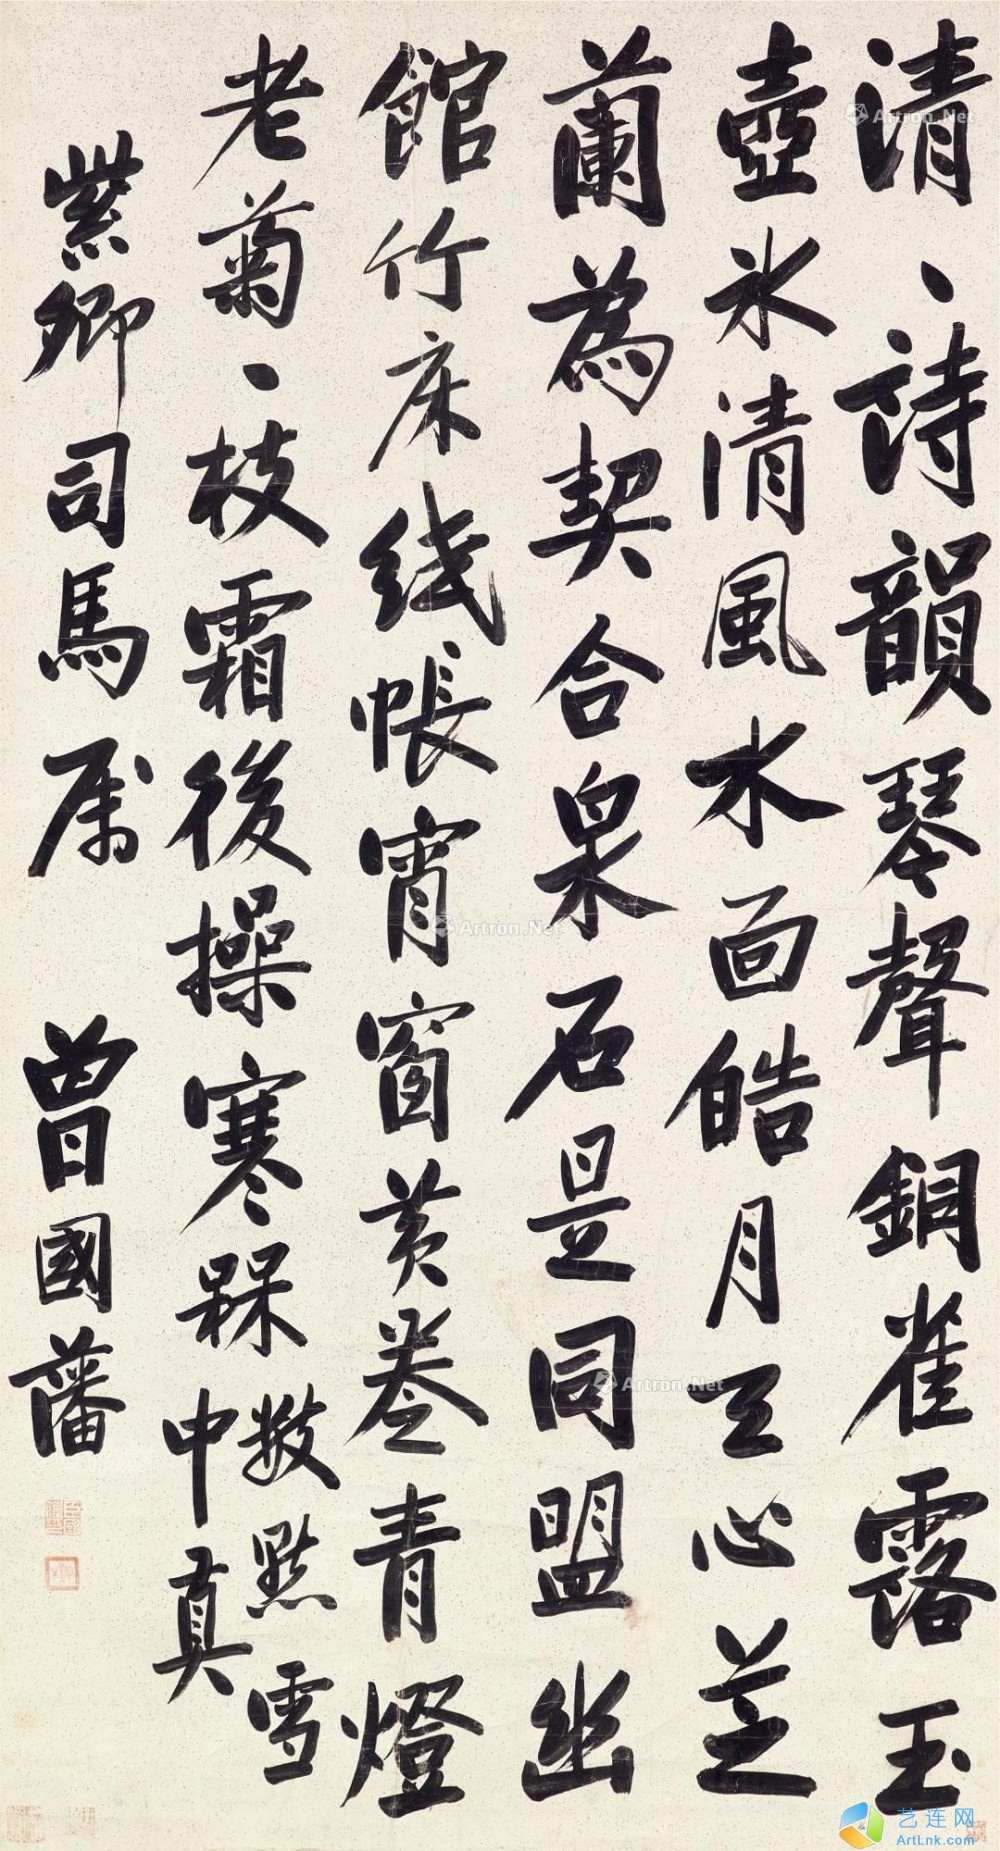 清、詩韻琴聲銅雀露玉
壺冰清風水面皓月天心芝
蘭為契合泉石是同盟幽
館竹床綫帳宵窗黄卷青燈
老菊、枝霜後操寒槑數點雪
中真
紫卿司馬属 曾國藩
Artron.Net
Artron.Net
Artron.Net
艺连网
ArtLnk.com